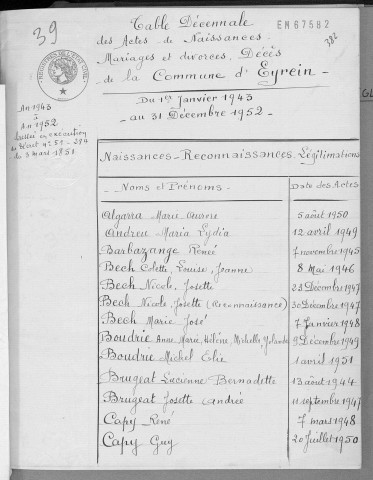 39
Table Décennale
EM67582
282
des Actes de Naissances.
Mariages et divorces. Décès
de la Commune d'Eyrein
An 1943
à
An 1952
Du 1er Janvier 1943
au 31 Décembre 1952
en exécution
du Décret n° 51-284
du 3 mars 1951
Naissances - Reconnaissances. Légitimations
Noms et Prénoms Date des Actes
Algarra Marie Aurore 5 août 1950
Andrieu Maria Lydia 12 avril 1949
Barbazange Renée 7 novembre 1945
Bech Colette, Louise, Jeanne 8 Mai 1946
Bech Nicole, Josette 23 Décembre 1947
Bech Nicole, Josette (Reconnaissance) 30 Décembre 1947
Bech Marie José 7 Janvier 1948
Boudrie Anne Marie, Hélène, Michelle, Yolande 9 Décembre 1949
Boudrie Michel Elie 1 avril 1951
Brugeat Lucienne Bernadette 13 août 1944
Brugeat Josette Andrée 11 septembre 1947
Capy René 7 mars 1948
Capy Guy 20 Juillet 1950